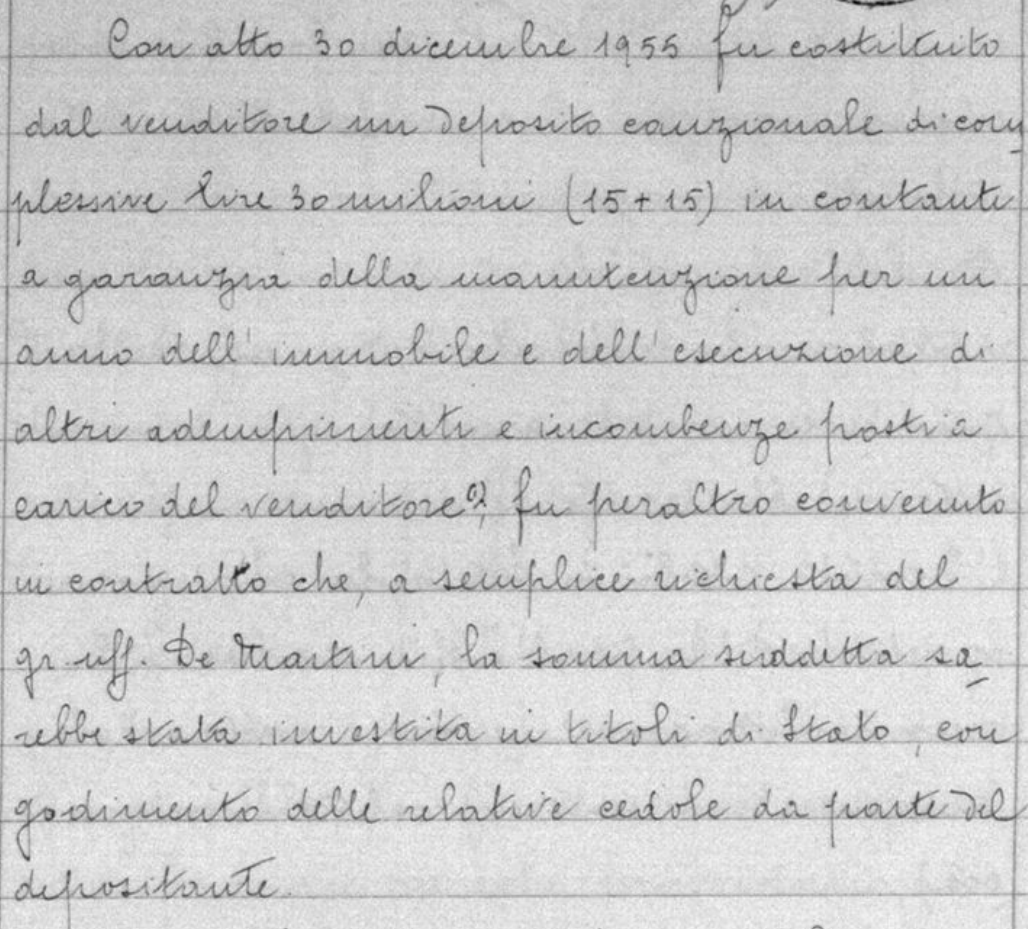 Con atto 30 dicembre 1955 fu costituito
dal venditore un deposito cauzionale di com
plessive lire 30 milioni (15+15) in contanti
a garanzia della manutenzione per un
anno dell'immobile e dell'esecuzione di
altri adempimenti e incombenze posti a
carico del venditore; fu peraltro convenuto
in contratto che, a semplice richiesta del
gr. uff. De Martini, la somma suddetta sa
rebbe stata investita in titoli di Stato, con
godimento delle relative cedole da parte del
depositante.